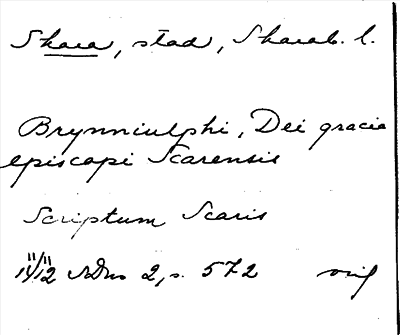 Skara, stad, Skarab. l.
Brynniulphi, Dei gracia
episcopi Scarensis
Scriptum Scaris
DS 2, s. 572 orig